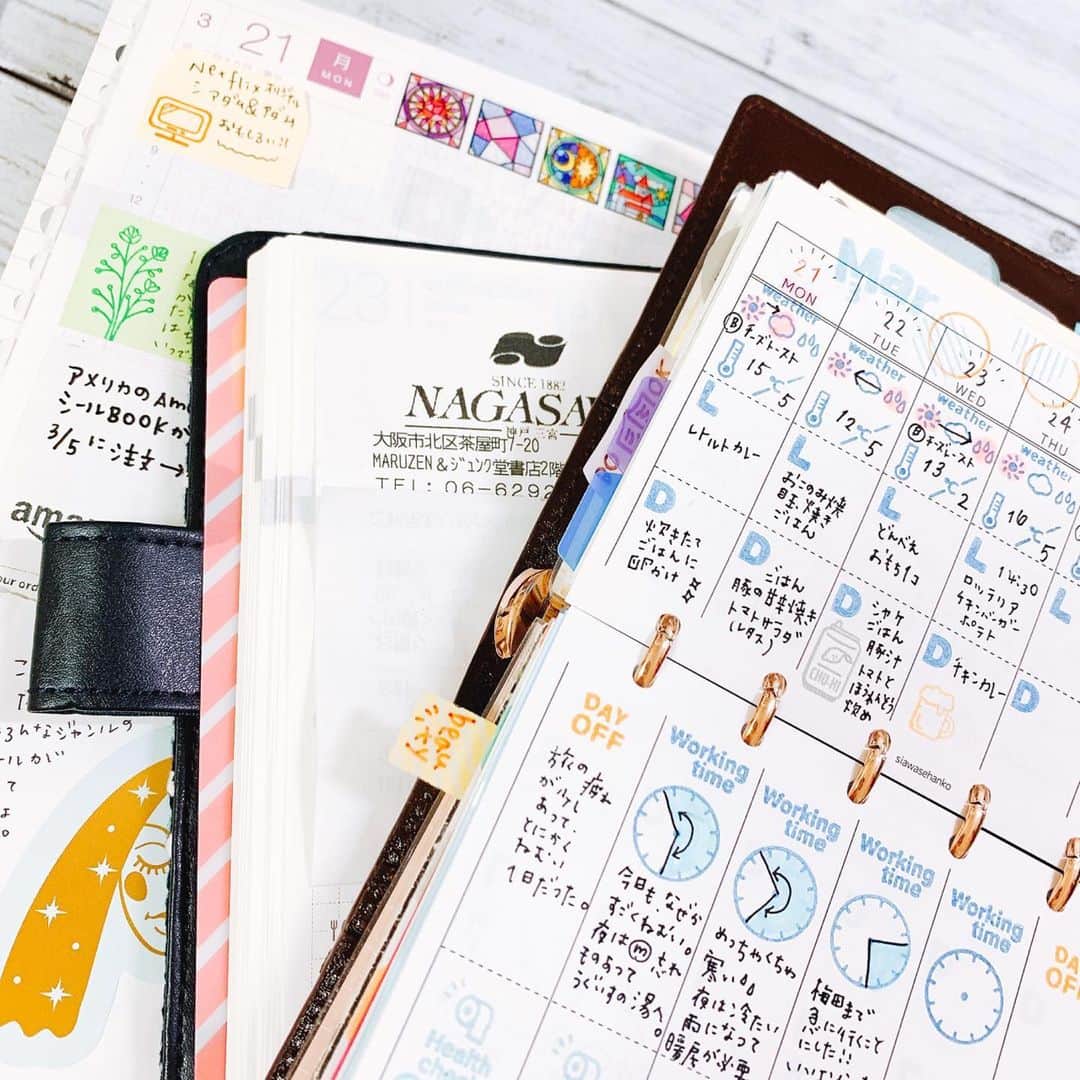 3 21 月
MON
Netflixオリジナル
シマダム&アダム
おもしろい!!
9
12
アメリカのAma
シールBOOKが
3/5に注文→
ama
our ord
ールが
SINCE 1882
NAGASAW
神戸 三宮
大阪市北区茶屋町7-20
MARUZEN&ジュンク堂書店2階
TEL:06-6292
beauty
Mar
21
MON
weather
Ⓑチーズトースト
15℃/5
L
レトルトカレー
D
炊きたて
ごはんに
卵かけ
22
TUE
weather
12℃/5
L
おこのみ焼
目玉焼き
ごはん
D
ごはん
豚の甘辛焼き
トマトサラダ
(レタス)
23
WED
weather
Ⓑチーズトースト
13℃/2
L
どんべえ
おもち
D
シャケ
ごはん
豚汁
トマトと
ほうれんそう
炒め
CHU-HI
24
THU
weather
10℃/5
L 14:30
ロッテリア
チキンバーガー
ポテト
D
チキンカレー
L
D
siawasehanko
DAY
OFF
旅の疲れ
が
あって、
とにかく
ねむい
1日だった。
Working
time
今日も、なぜか
すごくねむい。
夜はⓜ忘れ
ものあって
うぐいすの湯へ。
Working
time
めっちゃくちゃ
寒い
夜は冷たい
雨になって
暖房が必要
Working
time
梅田まで
急に行くこと
にした!!
Working
time
DAY
OFF
Health
check